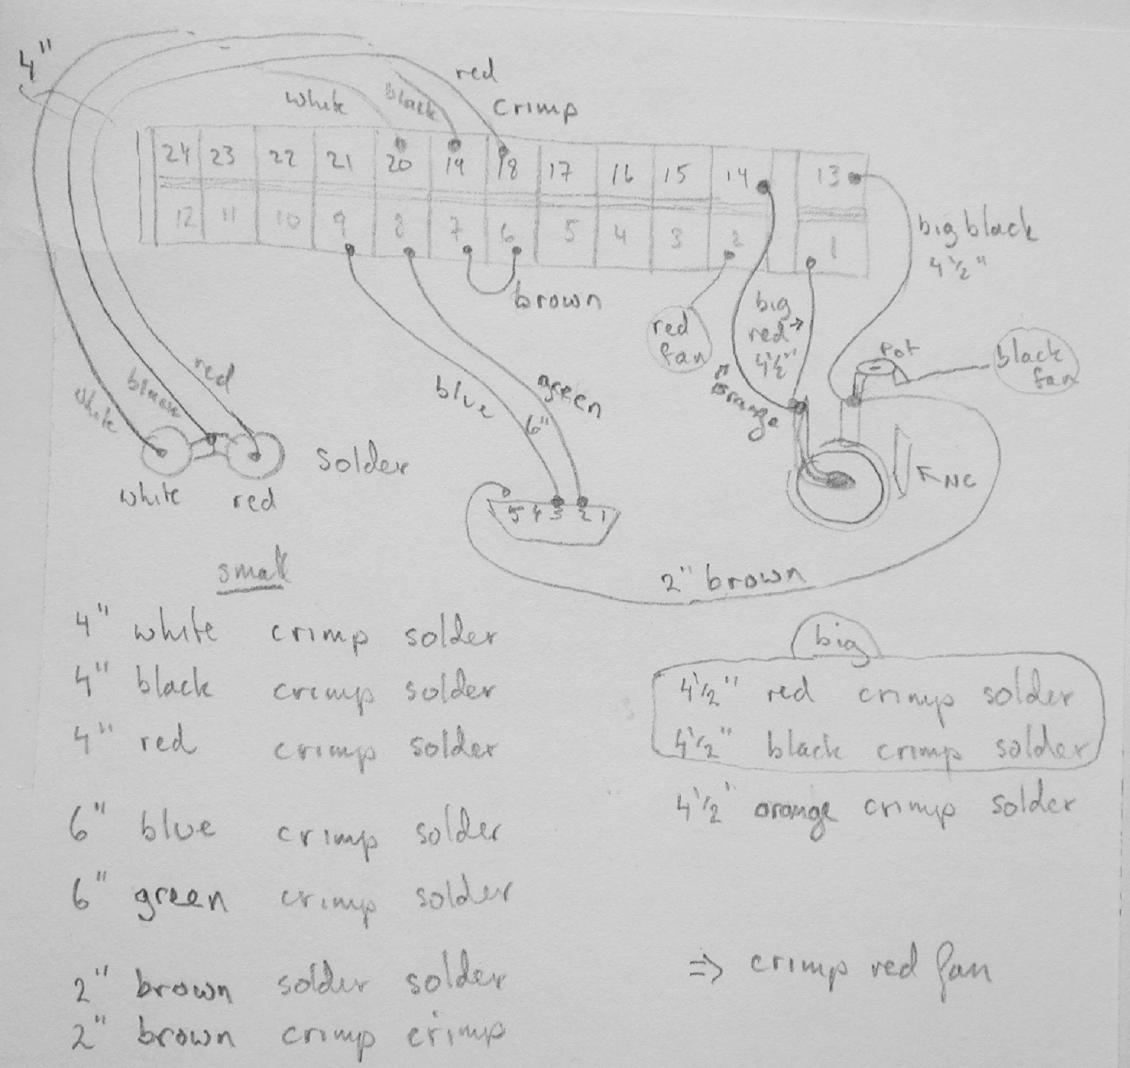 4"
red
white
black
crimp
24 23 22 21 20 19 18 17 16 15 14 13
12 11 10 9 8 7 6 5 4 3 2 1
big black
4 1/2"
brown
big
red →
4 1/2"
red
fan
orange
Pot
black
fan
red
black
white
blue
green
6"
solder
white
red
NC
5 4 3 2 1
2" brown
small
4" white crimp solder
4" black crimp solder
4" red crimp solder
6" blue crimp solder
6" green crimp solder
2" brown solder solder
2" brown crimp crimp
big
4 1/2" red crimp solder
4 1/2" black crimp solder
4 1/2" orange crimp solder
⇒ crimp red fan